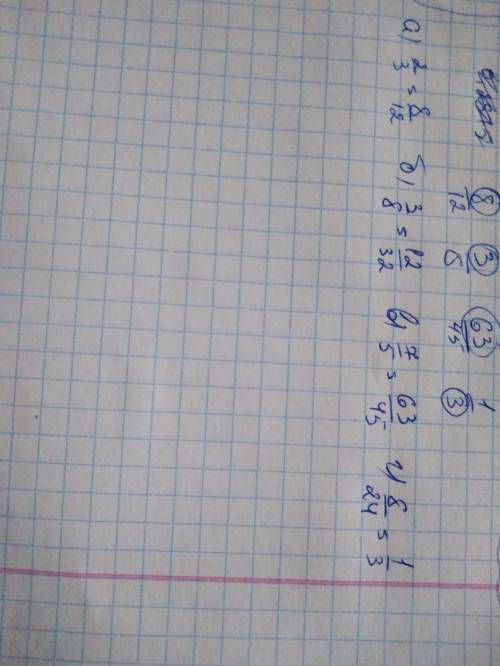 8/12 3/8 63/45 1/3
а) 2/3 = 8/12 б) 3/8 = 12/32 в) 7/5 = 63/45 г) 8/24 = 1/3